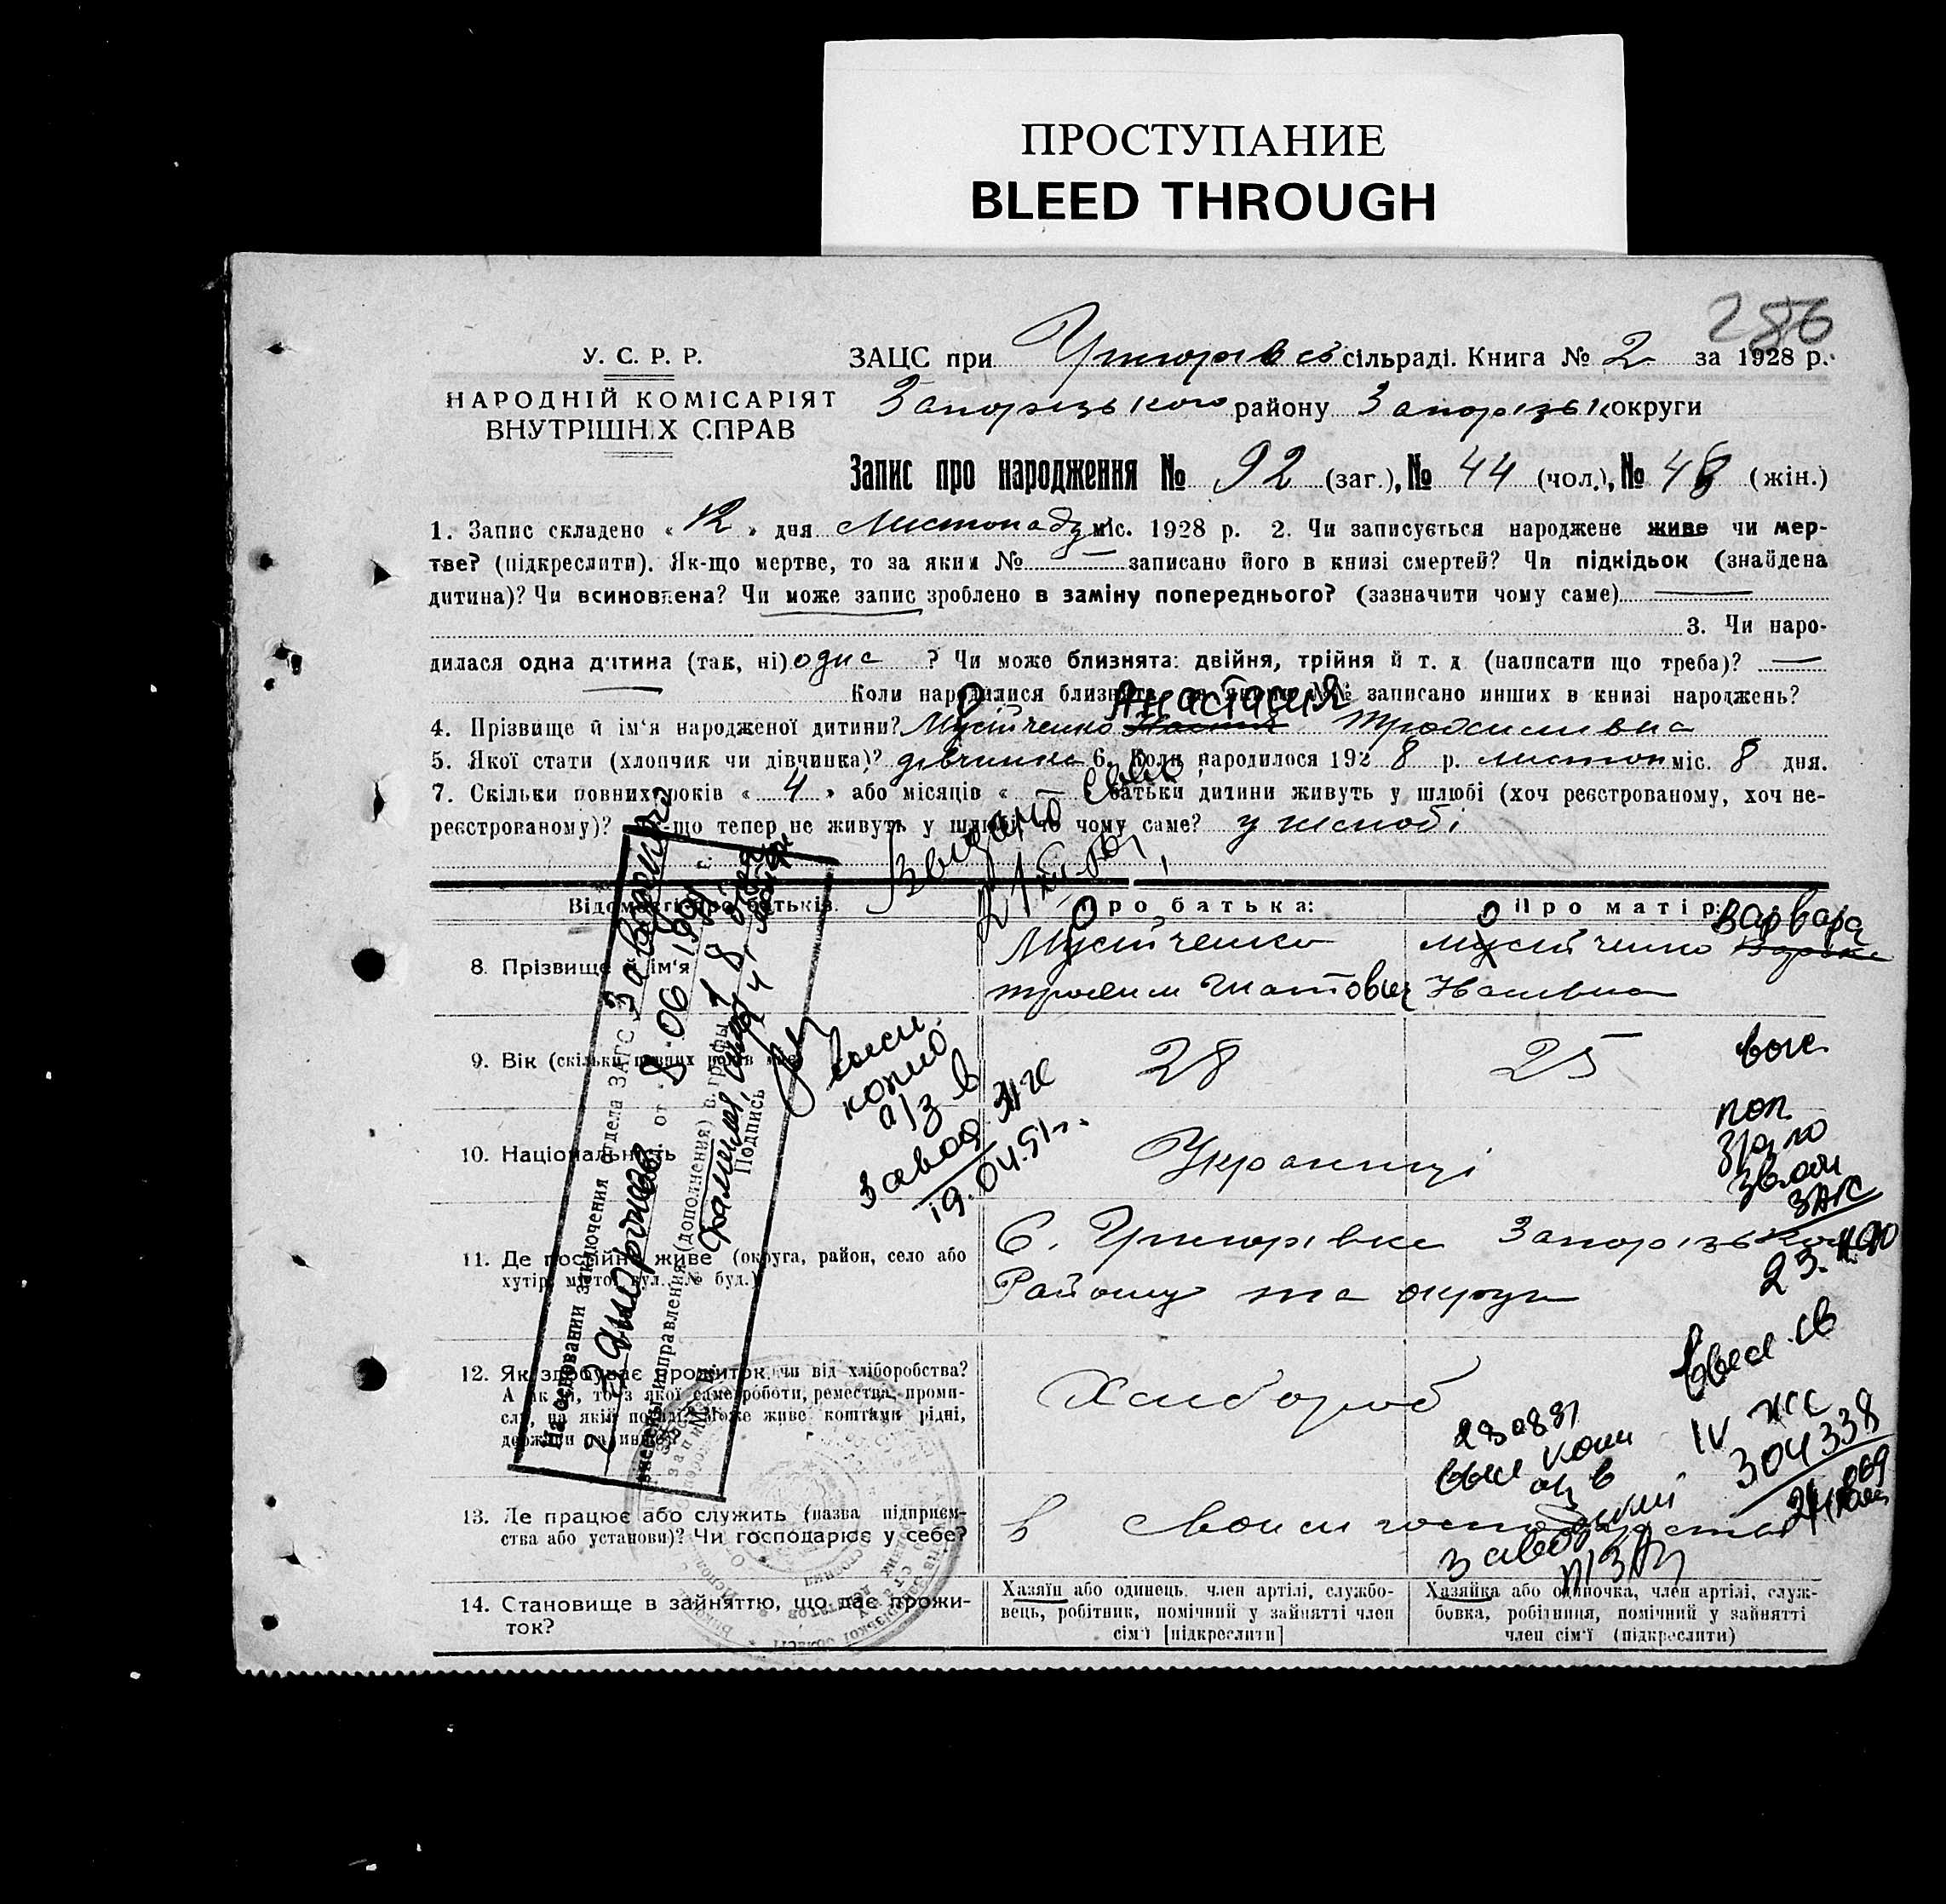 ПРОСТУПАНИЕ
BLEED THROUGH
286
У. С. Р. Р.
НАРОДНІЙ КОМІСАРІЯТ
ВНУТРІШНІХ СПРАВ
ЗАЦС при Григорівській сільраді. Книга № 2 за 1928 р.
Запорізького району Запорізьк округи
Запис про народження № 92 (заг.), № 44 (чол.), № 48 (жін.)
1. Запис складено « 12 » дня Листопаду міс. 1928 р. 2. Чи записується народжене живе чи мер-
тве? (підкреслити). Як-що мертве, то за яким № — записано його в книзі смертей? Чи підкідьок (знайдена
дитина)? Чи всиновлена? Чи може запис зроблено в заміну попереднього? (зазначити чому саме) —
3. Чи наро-
дилася одна дитина (так, ні) одна ? Чи може близнята: двійня, трійня й т. д. (написати що треба)? —
Коли народилися близнята, за якими №№ записано инших в книзі народжень?
Анастасия
4. Прізвище й ім'я народженої дитини? Мусійченко Трохимівна
5. Якої стати (хлопчик чи дівчинка)? дівчинка 6. Коли народилося 1928 р. листоп міс. 8 дня.
7. Скільки повних років « 4 » або місяців « — батьки дитини живуть у шлюбі (хоч реєстрованому, хоч не-
реєстрованому)? Як-що тепер не живуть у шлюбі, то чому саме? у шлюбі
Відомості про батьків.
Про батька:
Про матір:
8. Прізвище й ім'я
Мусійченко
Трохим Гнатович
Мусійченко Варвара
9. Вік (скільки повних років має)
28
25
10. Національність
Українці
11. Де постійно живе (округа, район, село або
хутір, місто, вул., № буд.)
С. Григорівка Запорізького
Району та округи
12. Як здобуває прожиток, чи від хліборобства?
А як ні, то з якої саме роботи, ремества, проми-
слу, на якій посаді? Може живе коштами рідні,
держави чи инше?
Хлібороб
13. Де працює або служить (назва підприєм-
ства або установи)? Чи господарює у себе?
в своїм господарстві
14. Становище в зайняттю, що дає прожи-
ток?
Хазяїн або одинець, член артілі, службо-
вець, робітник, помічний у зайнятті член
сім'ї [підкреслити]
Хазяйка або одиночка, член артілі, служ-
бовка, робітниця, помічний у зайнятті
член сім'ї (підкреслити)
На основании заключения отдела ЗАГС Заводского
г. Запорожья от 8.06 1990 г.
внесены исправления (дополнения) в графы
фамилия, имя
Подпись
копию
а/з в
завод. ЗАГС
19.04.91г.
ЗАГС
IV ЖС
304338